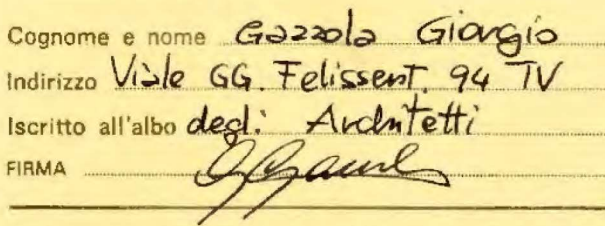 Cognome e nome Gazzola Giorgio
Indirizzo Viale GG. Felissent. 94 TV
Iscritto all'albo degli Architetti
FIRMA